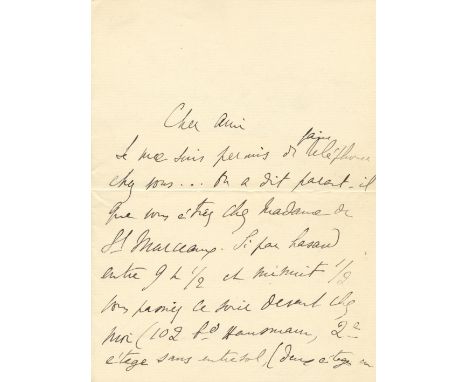 Cher ami
Je me suis permis de faire téléphoner
chez vous... On a dit paraît-il
que vous étiez chez Madame de
St Marceaux. Si par hasard
entre 9 h 1/2 et minuit 1/2
vous passiez ce soir devant chez
moi (102 Bd Haussmann, 2e
étage sans entresol, (deux étages en